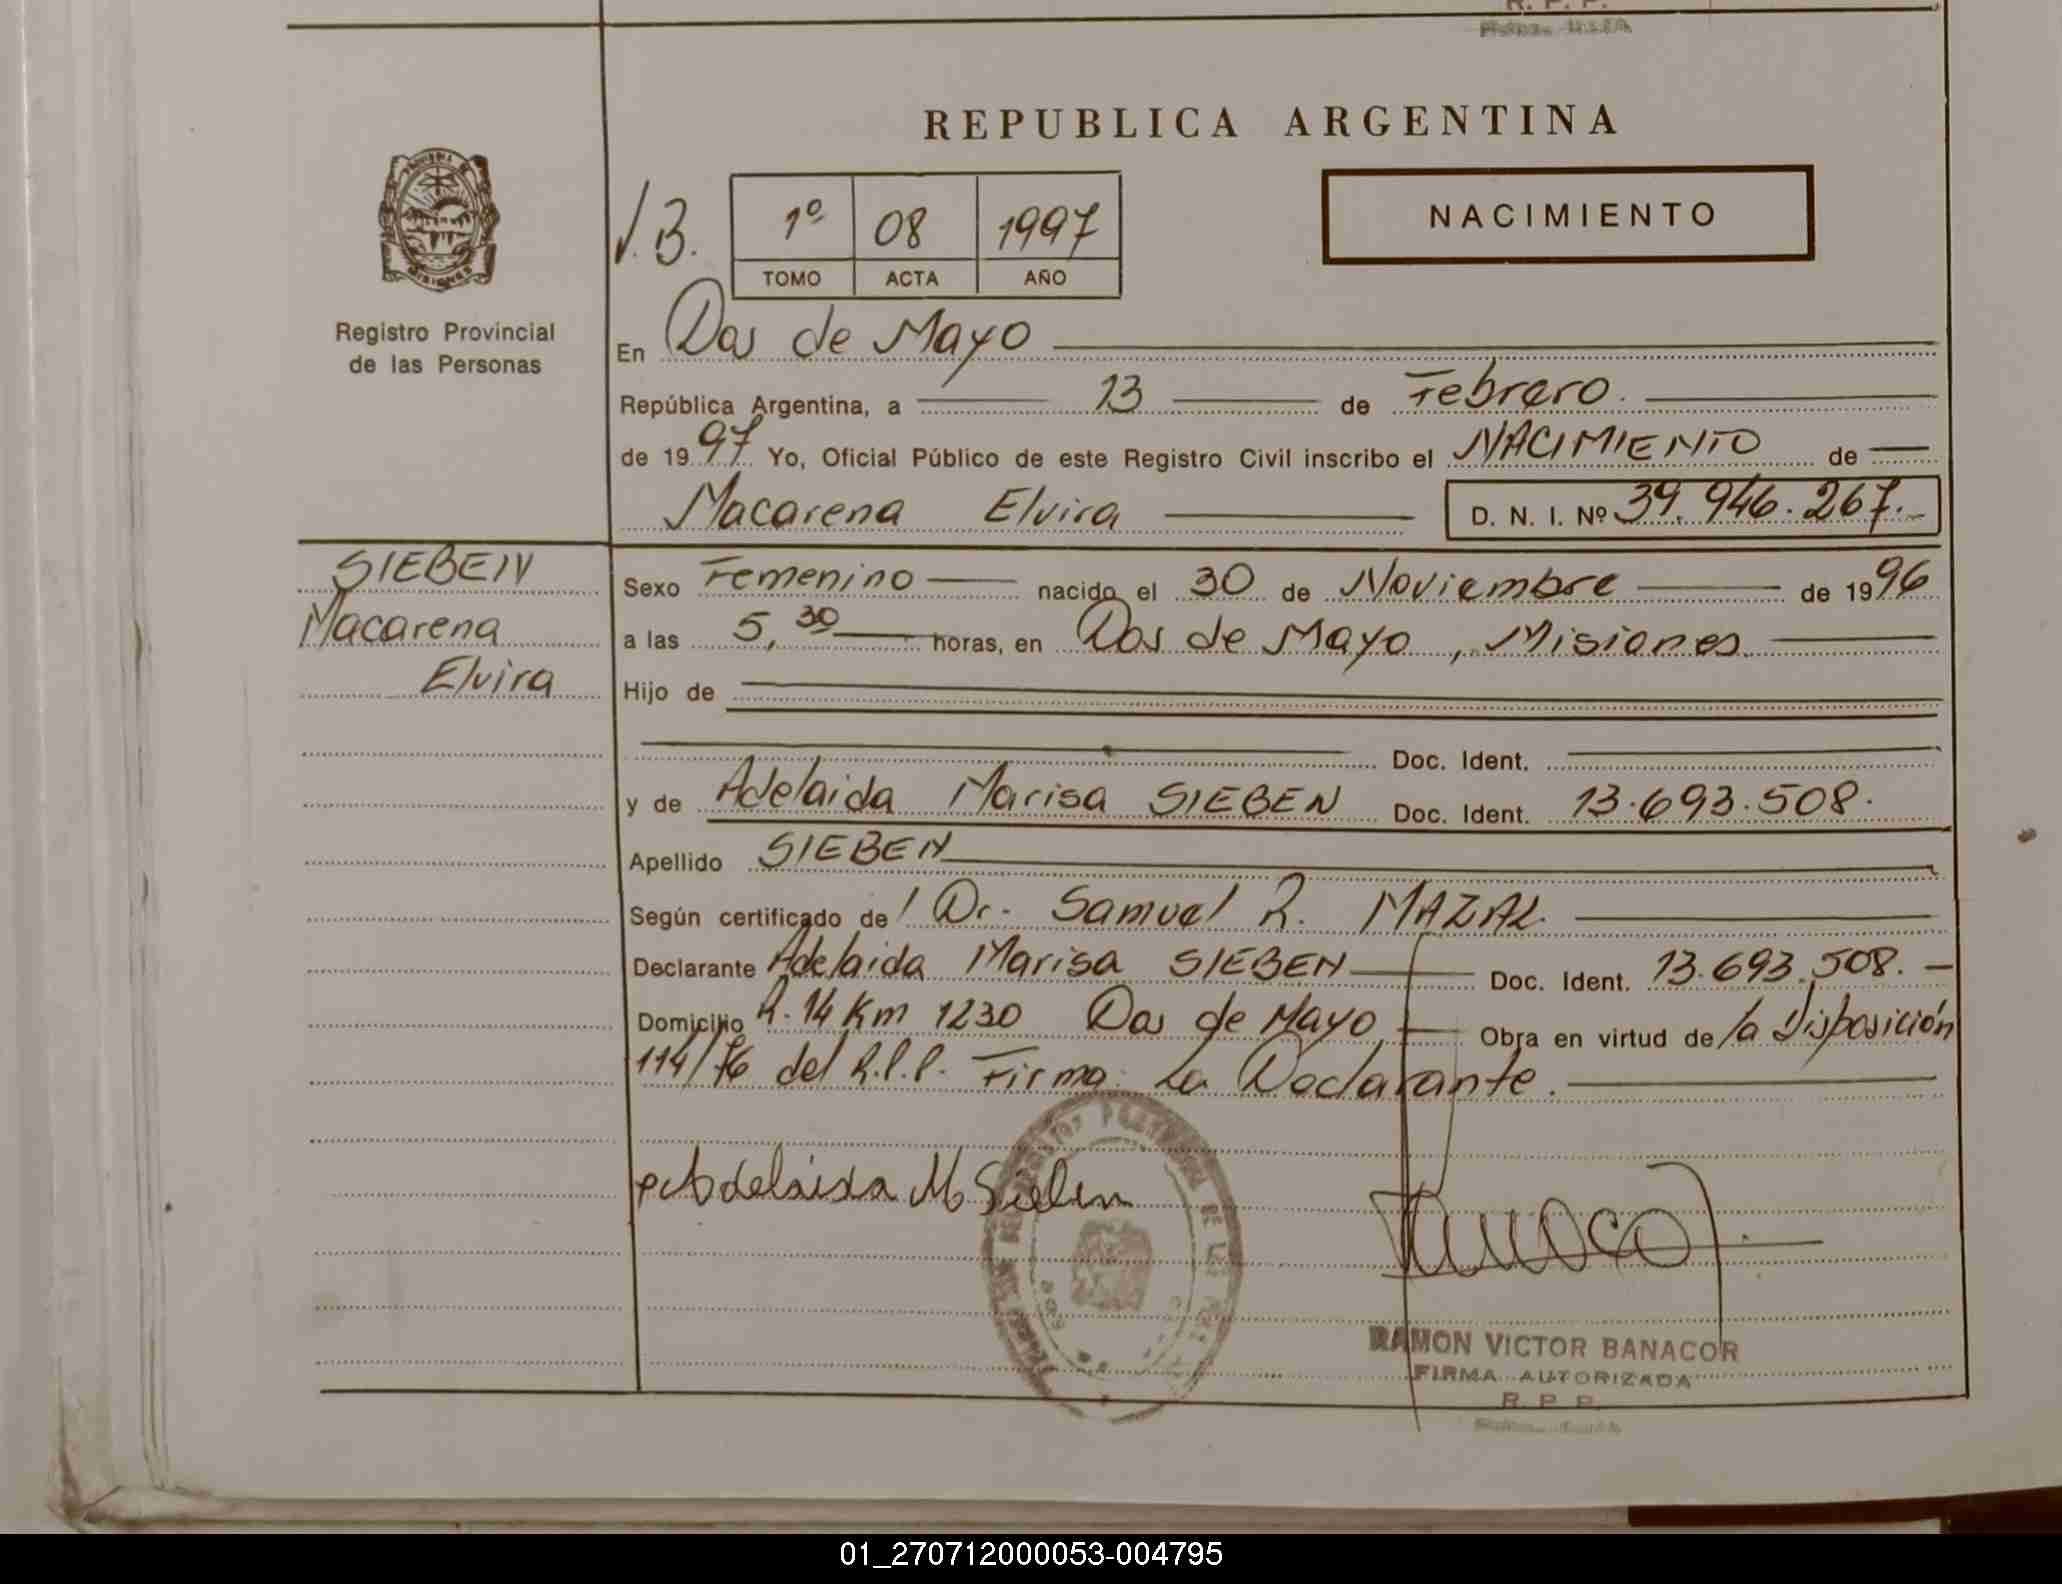 R. P. P.
REPUBLICA ARGENTINA
PROVINCIA DE
MISIONES
V.B.
1º 08 1997
TOMO ACTA AÑO
NACIMIENTO
Registro Provincial
de las Personas
En Dos de Mayo
República Argentina, a 13 de Febrero.
de 1997 Yo, Oficial Público de este Registro Civil inscribo el NACIMIENTO de
Macarena Elvira D. N. I. Nº 39.946.267.
SIEBEN
Macarena
Elvira
Sexo Femenino nacido el 30 de Noviembre de 1996
a las 5,30 horas, en Dos de Mayo, Misiones.
Hijo de
Doc. Ident.
y de Adelaida Marisa SIEBEN Doc. Ident. 13.693.508.
Apellido SIEBEN
Según certificado de Dr. Samuel R. MAZAL.
Declarante Adelaida Marisa SIEBEN Doc. Ident. 13.693.508.
Domicilio R. 14 Km 1230 Dos de Mayo Obra en virtud de la Disposición
114/76 del R.P.P. Firma: La Declarante.
Adelaida M Sieben
RAMON VICTOR BANACOR
FIRMA AUTORIZADA
R. P. P.
01_270712000053-004795